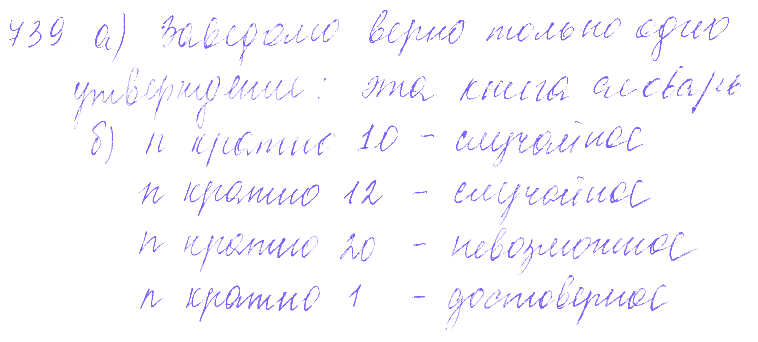 739 а) Заведомо верно только одно
утверждение: эта книга словарь
б) n кратно 10 - случайное
n кратно 12 - случайное
n кратно 20 - невозможное
n кратно 1 - достоверное